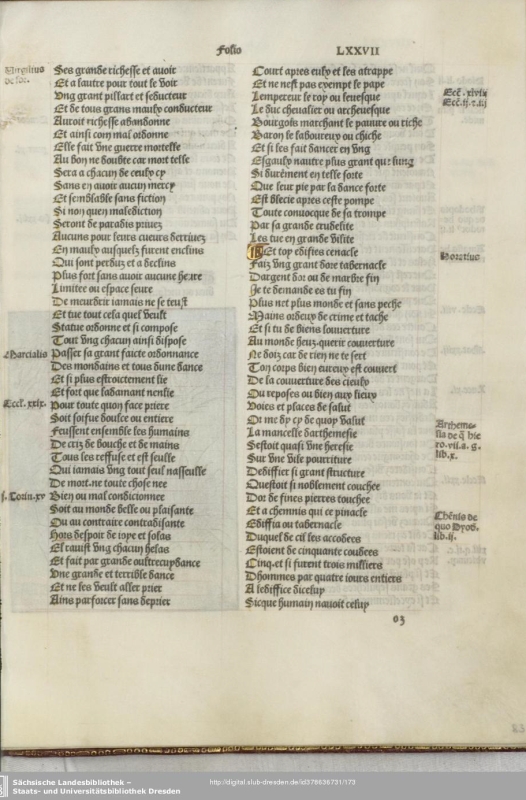 Folio LXXVII
Virgilius
Ses grande richesse et auoir
Et a lautre pour tout le voir
Vng grant pillart et seducteur
Et de tous grans maulx conducteur
Auroit richesse abandonne
Et ainsi com mal ordonne
Elle fait vne guerre mortelle
Au bon ne doubte car mort telle
Sera a chacun de ceulx cy
Sans en auoir aucun mercy
Et semblable sans fiction
Si non quen malediction
Seront de paradis priuez
Aucuns pour leurs cueurs derriuez
En maulx ausquelz furent enclins
Qui sont perduz et a declins
Plus fort sans auoir aucune heure
Limitee ou espace seure
De meurdrir iamais ne se teust
Et tue tout cela quel veult
Statue ordonne et si compose
Tout vng chacun ainsi dispose
Marcialis
Passer sa grant faicte ordonnance
Des mondains et tous dune dance
Et si plus estroictement lie
Et fort que ladamant nenlie
Eccl. xxix.
Pour toute quon face priere
Soit soisue doulce ou entiere
Feussent ensemble les humains
De criz de bouche et de mains
Tous les reffuse et est seulle
Qui iamais vng tout seul nasseulle
De mort ne toute chose nee
Bien ou mal condicionnee
Soit au monde belle ou plaisante
Ou au contraire contradisante
Hors despoir de ioye et solas
El rauist vng chacun helas
Et fait par grande oultrecuydance
Vne grande et terrible dance
Et ne les veult aller prier
Ains parforcer sans deprier
Court apres eulx et les atrappe
Et ne nest pas exempt le pape
Lempereur le roy ou leuesque
Le duc cheualier ou archeuesque
Bourgois marchant le pauure ou riche
Baron le laboureux ou chiche
Et si les fait dancer en vng
Esgaulx nautre plus grant que lung
Si durement en telle sorte
Que leur pie par la dance forte
Est blecie apres ceste pompe
Toute conuocque de sa trompe
Par sa grande crudelite
Les tue en grande vilite
Horatius
Et toy edifies cenacle
Faiz vng grant dore tabernacle
Dargent dor ou de marbre fin
Je te demande es tu fin
Plus net plus monde et sans peche
Mains ordeux de crime et tache
Et si tu de biens louuerture
Au monde heuz querir couuerture
Ne doiz car de rien ne te sert
Ton corps bien eureux est couuert
De la couuerture des cieulx
Ou reposes ou bien aux lieux
Voies et places de salut
Or me dy cy de quoy valut
La mancelle darthemesie
Sestoit quasi vne heresie
Sur vne vile pourriture
Dediffier si grant structure
Questoit si noblement couchee
Dor de fines pierres touchee
Et a chemnis qui ce pinacle
Ediffia ou tabernacle
Duquel de cil les accobees
Estoient de cinquante coudees
Cinq et si furent trois milliers
Dhommes par quatre iours entiers
A lediffice dicelluy
Sicque humain nauoit celuy
o3
Sächsische Landesbibliothek –
Staats- und Universitätsbibliothek Dresden
http://digital.slub-dresden.de/id378636731/173